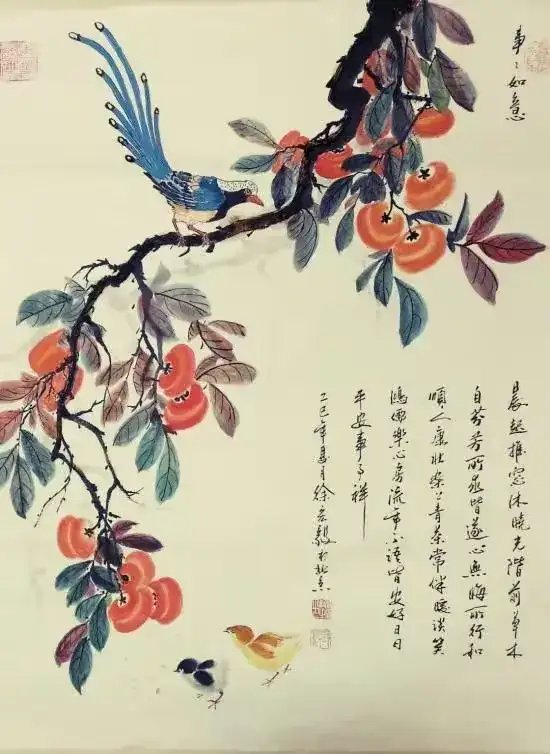 事事如意
晨起推窗沐晓光阶前草木
自芬芳所求皆遂心无悔所行和
顺人康壮粲粲青茶常伴暖谈笑
鸿儒乐心房流年不语皆安好日日
平安事事祥
乙巳年夏月徐宏毅于北京